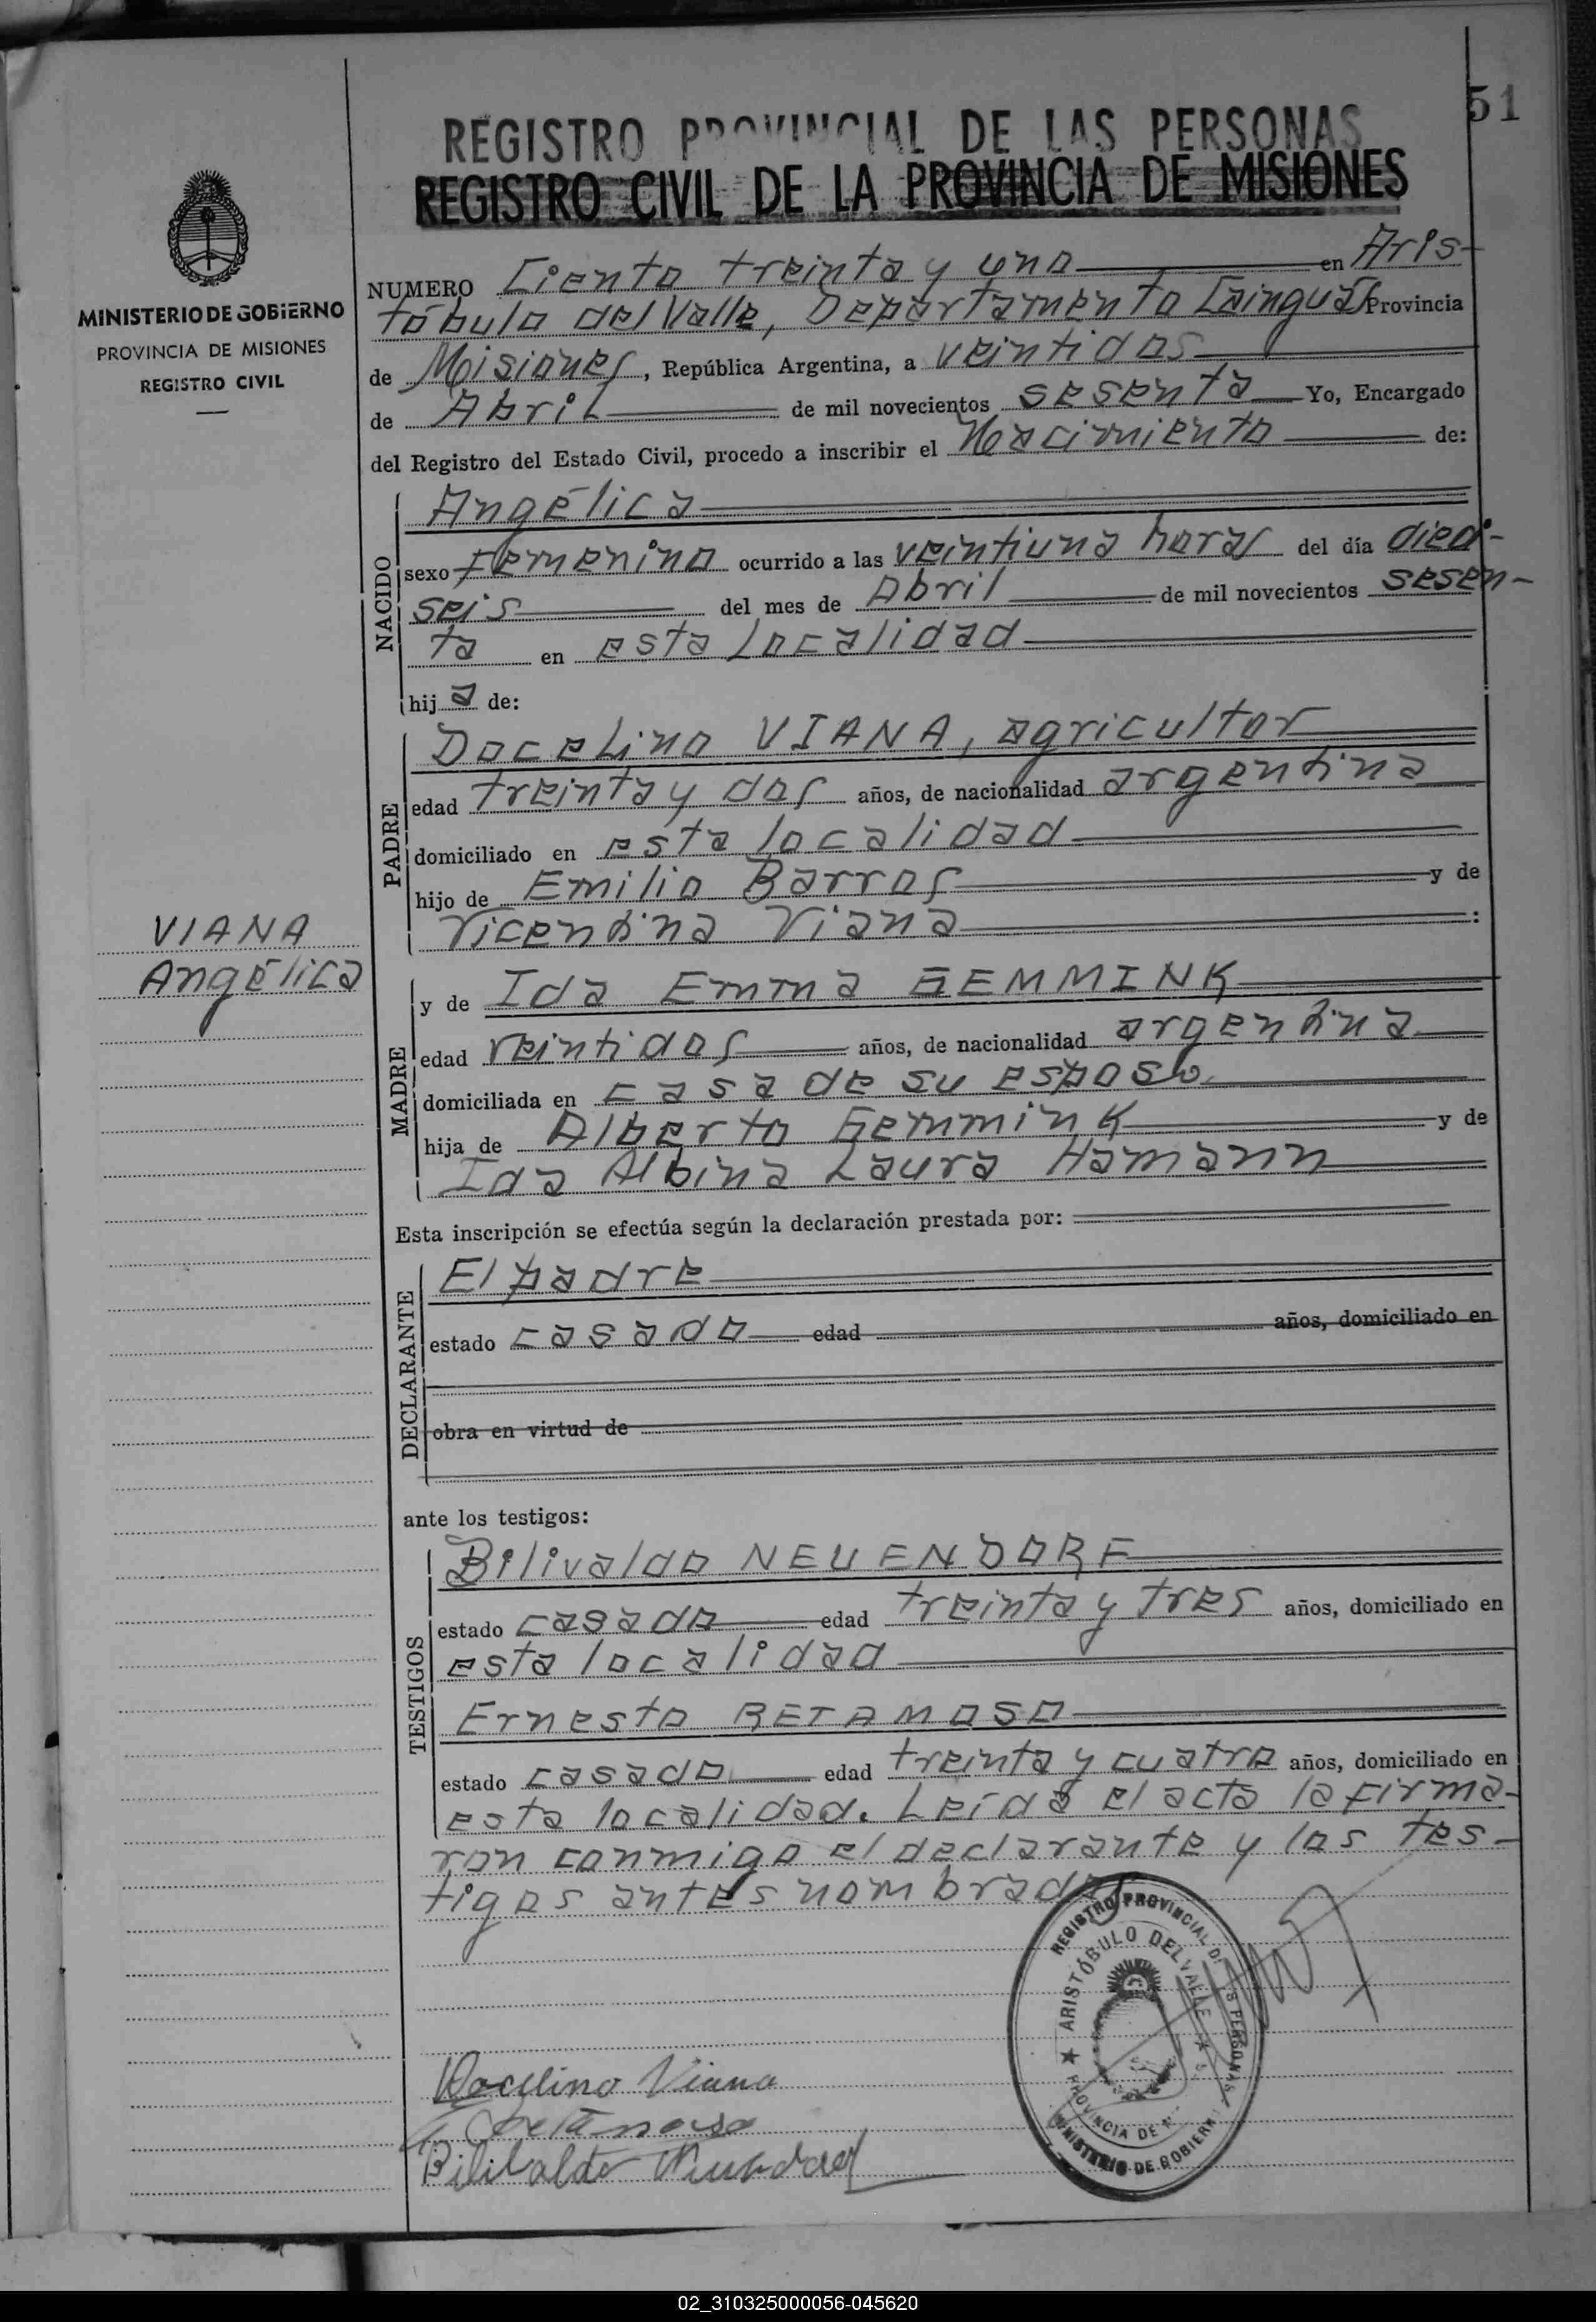 51
REGISTRO PROVINCIAL DE LAS PERSONAS
REGISTRO CIVIL DE LA PROVINCIA DE MISIONES
MINISTERIO DE GOBIERNO
PROVINCIA DE MISIONES
REGISTRO CIVIL
NUMERO Ciento treinta y uno en Aris-
tóbulo del Valle, Departamento Cainguás Provincia
de Misiones, República Argentina, a veintidos
de Abril de mil novecientos sesenta Yo, Encargado
del Registro del Estado Civil, procedo a inscribir el Nacimiento de:
NACIDO
Angélica
sexo Femenino ocurrido a las veintiuna horas del día dieci-
seis del mes de Abril de mil novecientos sesen-
ta en esta localidad
hij a de:
PADRE
Docelino VIANA, agricultor
edad treinta y dos años, de nacionalidad argentina
domiciliado en esta localidad
hijo de Emilio Barros y de
Vicentina Viana :
VIANA
Angélica
MADRE
y de Ida Emma GEMMINK
edad veintidos años, de nacionalidad argentina
domiciliada en casa de su esposo.
hija de Alberto Gemmink y de
Ida Albina Laura Hamann
Esta inscripción se efectúa según la declaración prestada por:
DECLARANTE
El padre
estado casado edad años, domiciliado en
obra en virtud de
ante los testigos:
TESTIGOS
Bilivaldo NEUENDORF
estado casado edad treinta y tres años, domiciliado en
esta localidad
Ernesto RETAMOSO
estado casado edad treinta y cuatro años, domiciliado en
esta localidad. Leída el acta la firma-
ron conmigo el declarante y los tes-
tigos antes nombrados
REGISTRO PROVINCIAL DE LAS PERSONAS
ARISTÓBULO DEL VALLE
PROVINCIA DE
MINISTERIO DE GOBIERNO
Docelino Viana
Retamoso
Bilivaldo Neuendorf
02_310325000056-045620